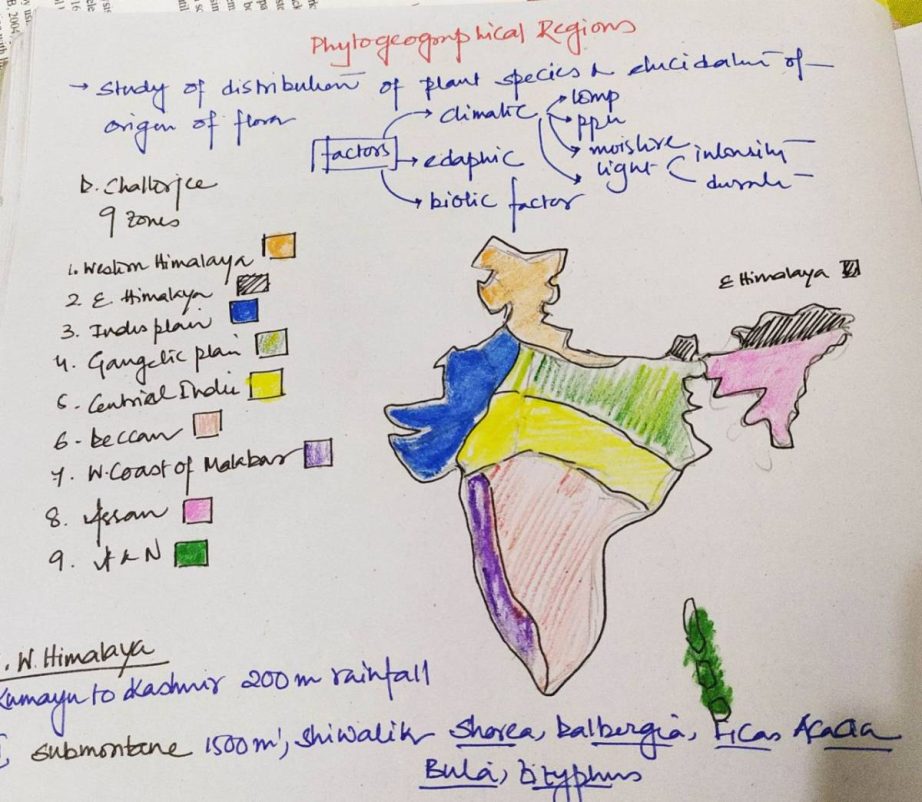 Phytogeogorphical Regions
→ Study of distribution of plant species & elucidation of
origin of flora
factors
→ climatic
→ temp
→ pptn
→ moisture
light
intensity
duratn
→ edaphic
→ biotic factor
D. Chatterjee
9 zones
1. Western Himalaya
2 E Himalaya
3. Indus plain
4. Gangetic plain
5. Central India
6. Deccan
7. W. Coast of Malabar
8. Assam
9. A & N
E Himalaya
. W. Himalaya
Kumayu to Kashmir 200 m rainfall
submontane 1500 m, Shiwalik Shorea, Dalbergia, Ficas Acacia
Bula, Zizyphus